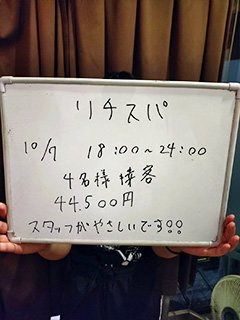 リチスパ
10/7 18:00~24:00
4名様接客
44.500円
スタッフがやさしいです!!